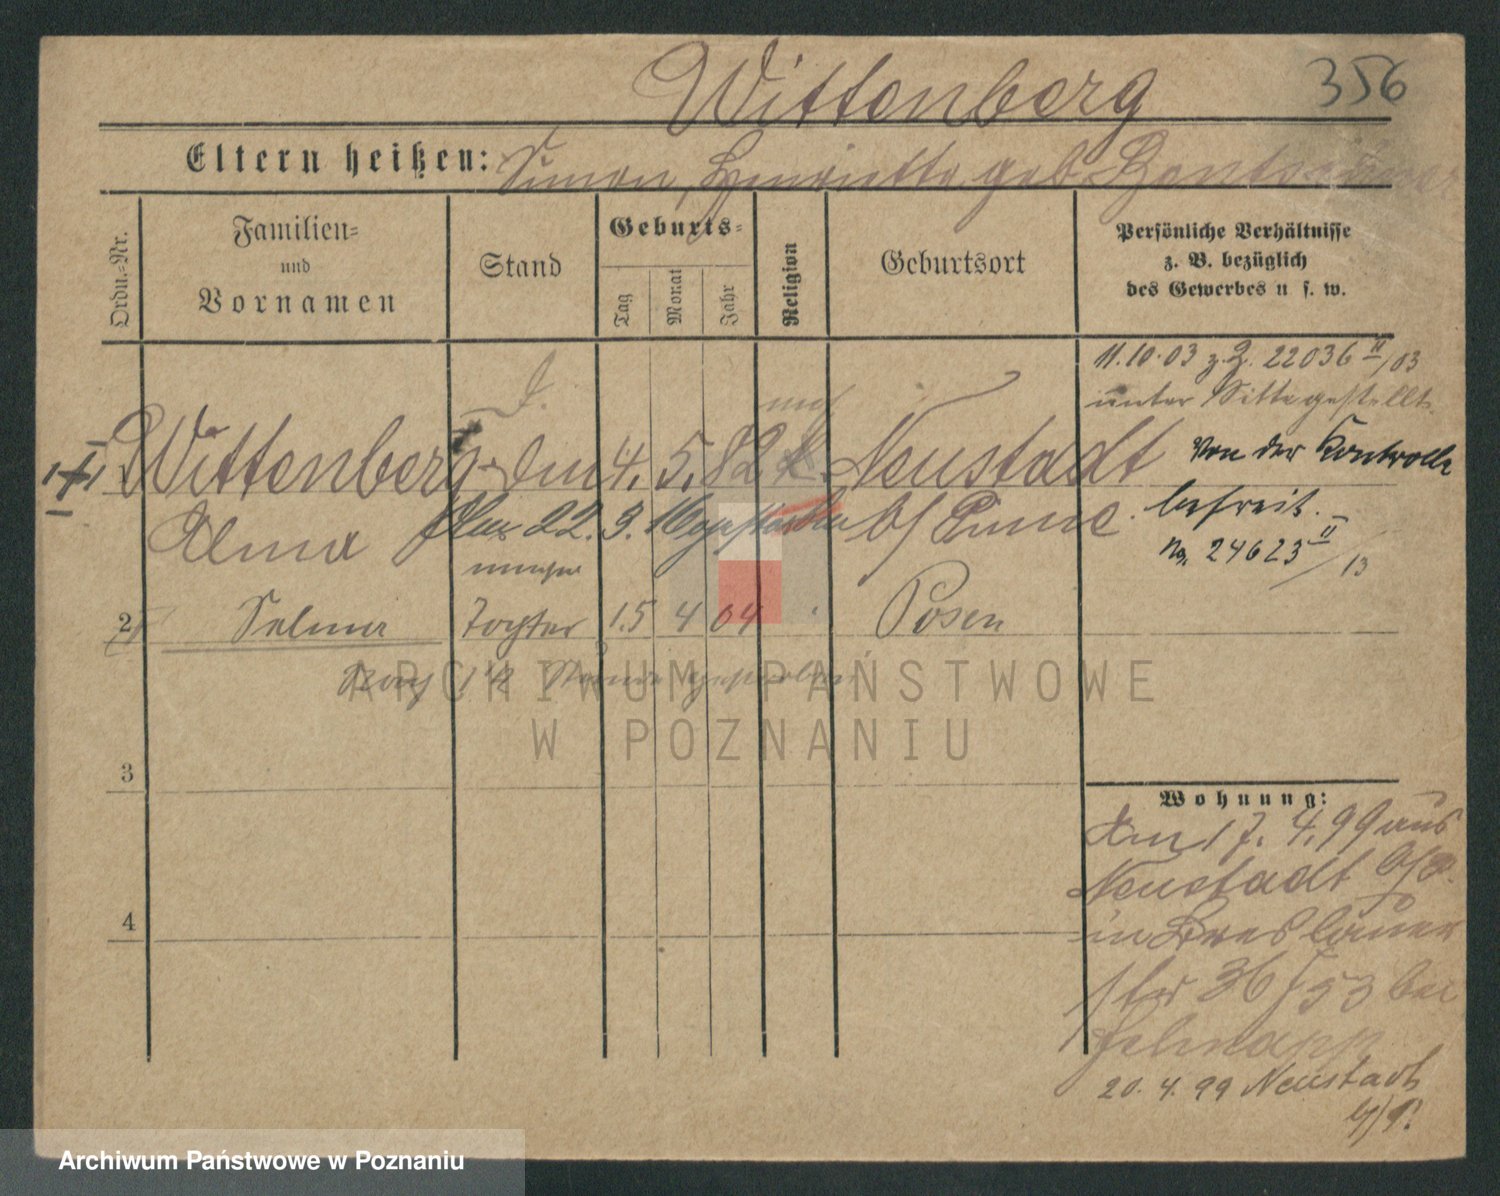 Wittenberg
356
Eltern heißen: Simon, Henriette geb.
Ordn.-Nr.
Familien-
und
Vornamen
Stand
Geburts-
Tag
Monat
Jahr
Religion
Geburtsort
Persönliche Verhältnisse
z. B. bezüglich
des Gewerbes u s. w.
11.10.03 z. 2. 22036 II/03
unter Sitte gestellt.
Wittenberg 4. 5. 82 Neustadt
von der Kontrolle
befreit.
No. 24623 II/13
Alma 22. 3. b/ Pinne
2 Selma Tochter 15 4 04 Posen
Nach 1½ gestorben
ARCHIWUM PAŃSTWOWE
W POZNANIU
3
Wohnung:
Am 17. 4. 99 aus
Neustadt b/P.
in Breslauer
str 36 bei
4
20. 4. 99 Neustadt
b/P.
Archiwum Państwowe w Poznaniu